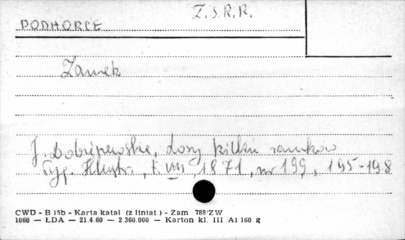 Z.S.R.R.
PODHORCE
Zamek
J. Dobrzewska, Losy kilku zamków
Tyg. Illustr., t. VIII, 1871, nr 199, 195-198
CWD - B 15b - Karta katal (z liniat) - Zam 788/ZW
1060 - ŁDA - 21.4.60 - 2.360.000 - Karton kl. III A1 160 g